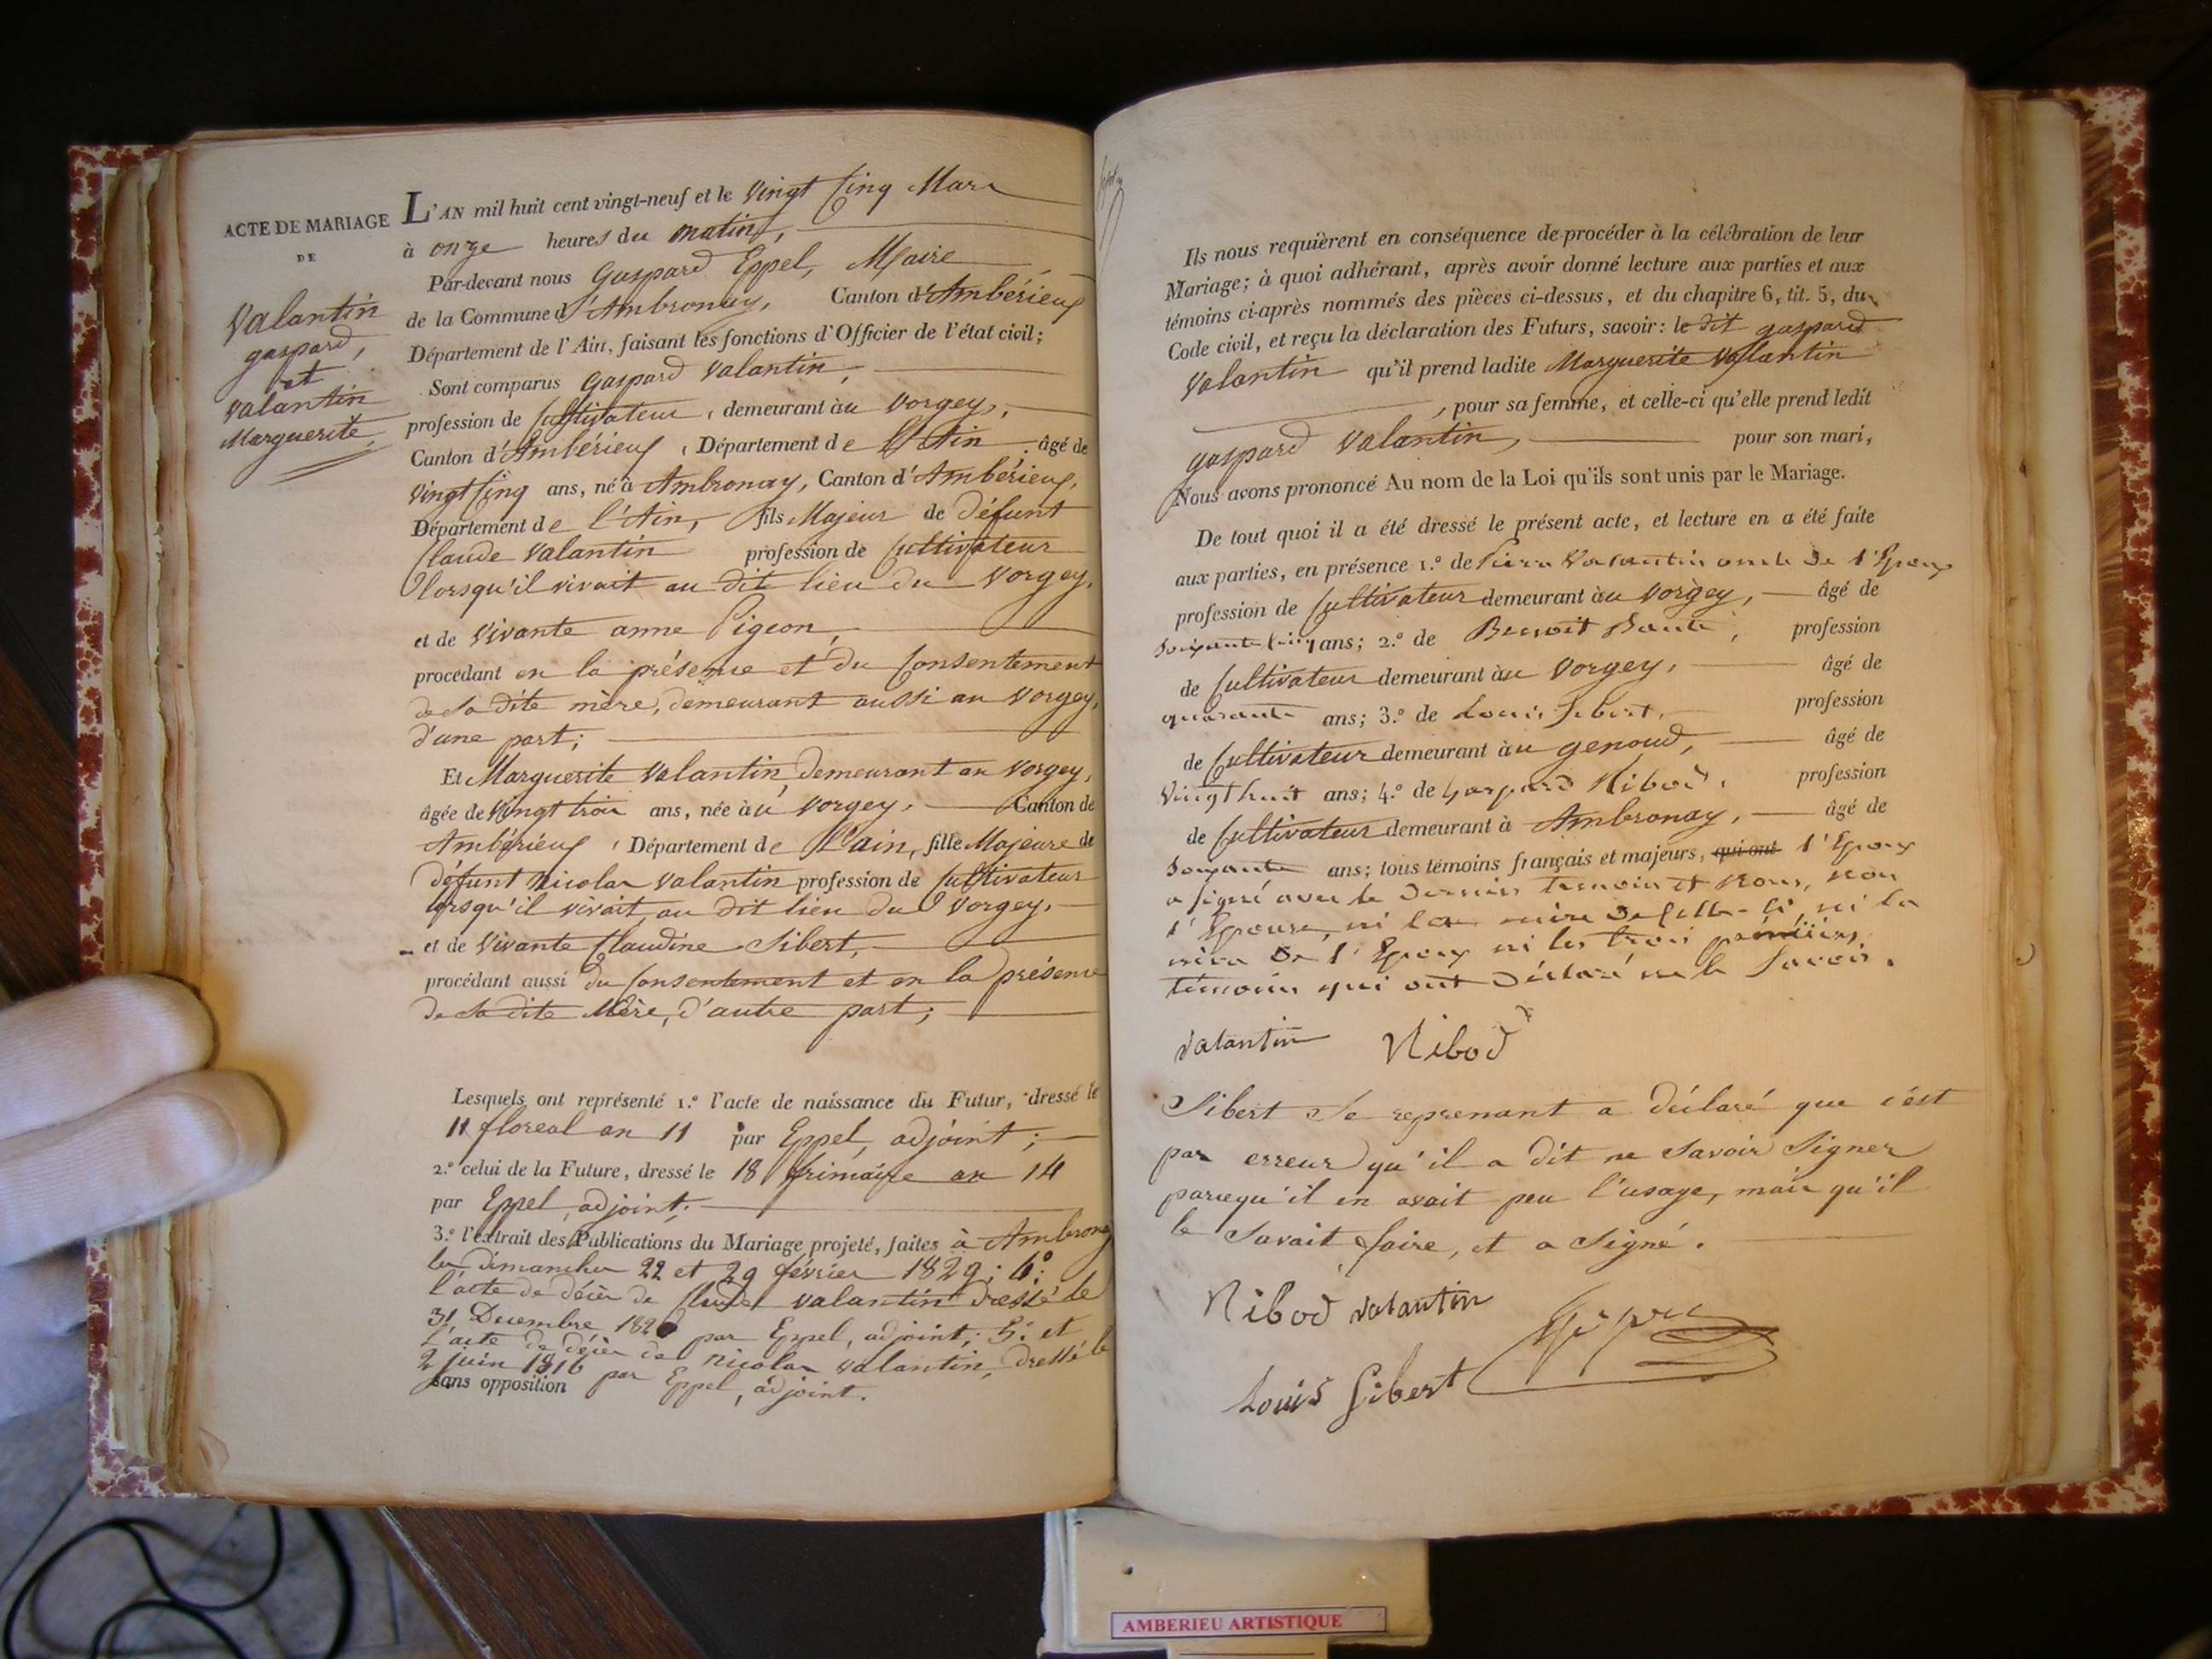 ACTE DE MARIAGE
DE
Valantin
gaspard,
et
valantin
Marguerite,
L'AN mil huit cent vingt-neuf et le vingt Cinq Mars
à onze heures du matin,
Par-devant nous Gaspard Eppel, Maire
de la Commune d'Ambronay, Canton d'Ambérieux
Département de l'Ain, faisant les fonctions d'Officier de l'état civil;
Sont comparus Gaspard Valantin,
profession de Cultivateur, demeurant àu Vorgey,
Canton d'Ambérieux, Département de l'Ain, âgé de
Vingt Cinq ans, né à Ambronay, Canton d'Ambérieux,
Département de l'Ain, fils Majeur de défunt
Claude Valantin profession de Cultivateur
lorsqu'il vivait au dit lieu du Vorgey,
et de Vivante anne Pigeon,
procédant en la présence et du Consentement
de sa dite mère, demeurant aussi au Vorgey,
d'une part;
Et Marguerite Valantin, demeurant au Vorgey,
âgée de Vingt trois ans, née àu Vorgey, Canton de
Ambérieux, Département de l'ain, fille Majeure de
défunt Nicolas Valantin profession de Cultivateur
lorsqu'il vivait au dit lieu du Vorgey,
et de Vivante Claudine Sibert,
procédant aussi du Consentement et en la présence
de sa dite Mère, d'autre part;
Lesquels ont représenté 1.º l'acte de naissance du Futur, dressé le
11 floreal an 11 par Eppel, adjoint;
2.º celui de la Future, dressé le 18 frimaire an 14
par Eppel, adjoint;
3.º l'extrait des Publications du Mariage projeté, faites à Ambronay
les dimanches 22 et 29 février 1829; 4º:
l'acte de décès de Claude Valantin dressé le
31 Decembre 182 par Eppel, adjoint; 5º et
l'acte de décès de nicolas valantin, dressé le
2 juin 1816 par Eppel, adjoint.
sans opposition
Ils nous requièrent en conséquence de procéder à la célébration de leur
Mariage; à quoi adhérant, après avoir donné lecture aux parties et aux
témoins ci-après nommés des pièces ci-dessus, et du chapitre 6, tit. 5, du
Code civil, et reçu la déclaration des Futurs, savoir: le dit gaspard
Valantin qu'il prend ladite Marguerite Valantin
, pour sa femme, et celle-ci qu'elle prend ledit
gaspard Valantin, pour son mari,
Nous avons prononcé Au nom de la Loi qu'ils sont unis par le Mariage.
De tout quoi il a été dressé le présent acte, et lecture en a été faite
aux parties, en présence 1.º de Pierre Valantin oncle de l'Epoux
profession de Cultivateur demeurant àu Vorgey, âgé de
soixante cinq ans; 2.º de Benoit , profession
de Cultivateur demeurant àu Vorgey, âgé de
quarante ans; 3.º de Louis Sibert, profession
de Cultivateur demeurant àu genoud, âgé de
Vingt huit ans; 4.º de Gaspard Nibod, profession
de Cultivateur demeurant à Ambronay, âgé de
soixante ans; tous témoins français et majeurs, qui ont l'Epoux
a signé avec le dernier temoin et Nous, non
l'Epouse, ni la mère de celle-ci, ni la
mère de l'Epoux ni les trois premiers
témoins qui ont déclaré ne le savoir.
valantin Nibod
Sibert se reprenant a déclaré que c'est
par erreur qu'il a dit ne savoir signer
parcequ'il en avait peu l'usage, mais qu'il
le savait faire, et a signé.
Nibod valantin
Louis Sibert
AMBERIEU ARTISTIQUE